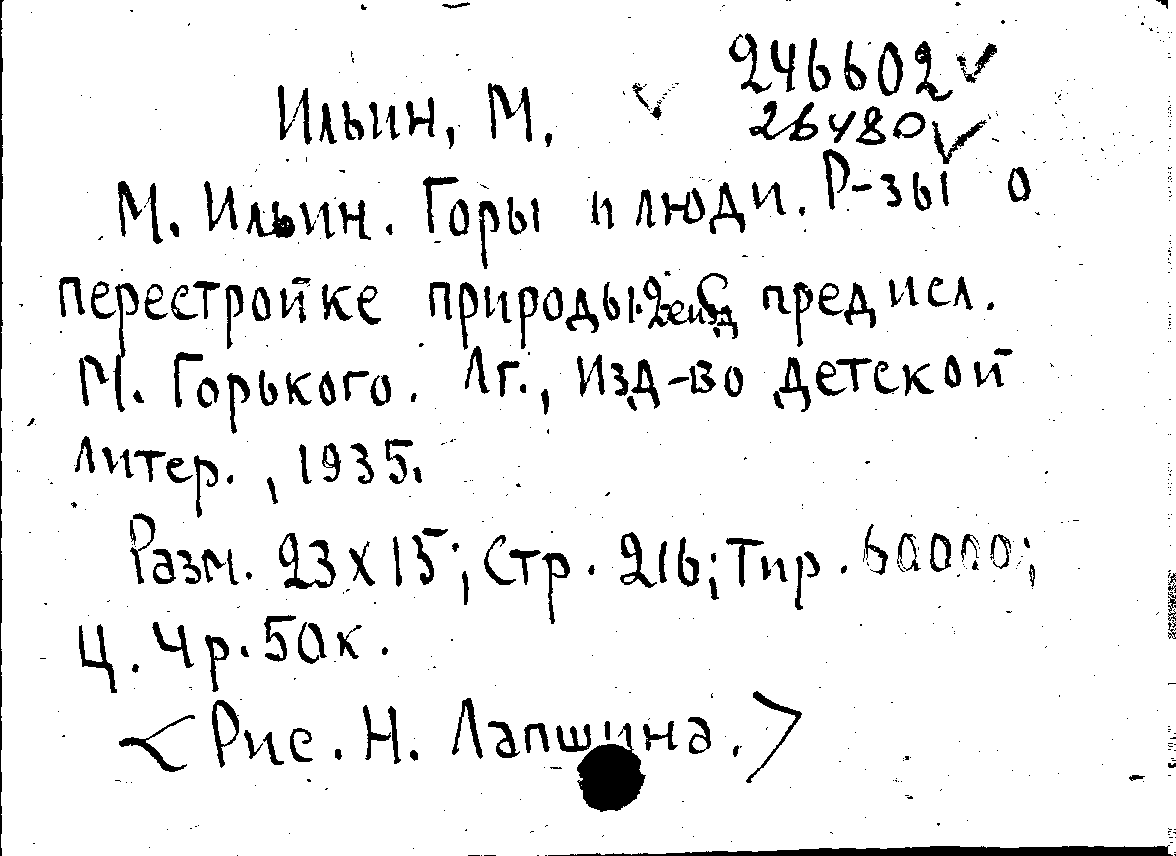 246602
Ильин, М. 26480
М. Ильин. Горы и люди. Р-зы о
перестройке природы. 2е изд предисл.
М. Горького. Лг., Изд-во детской
литер., 1935.
Разм. 23х15; Стр. 216; Тир. 60000;
Ц. 4р. 50к.
<Рис. Н. Лапшина.>